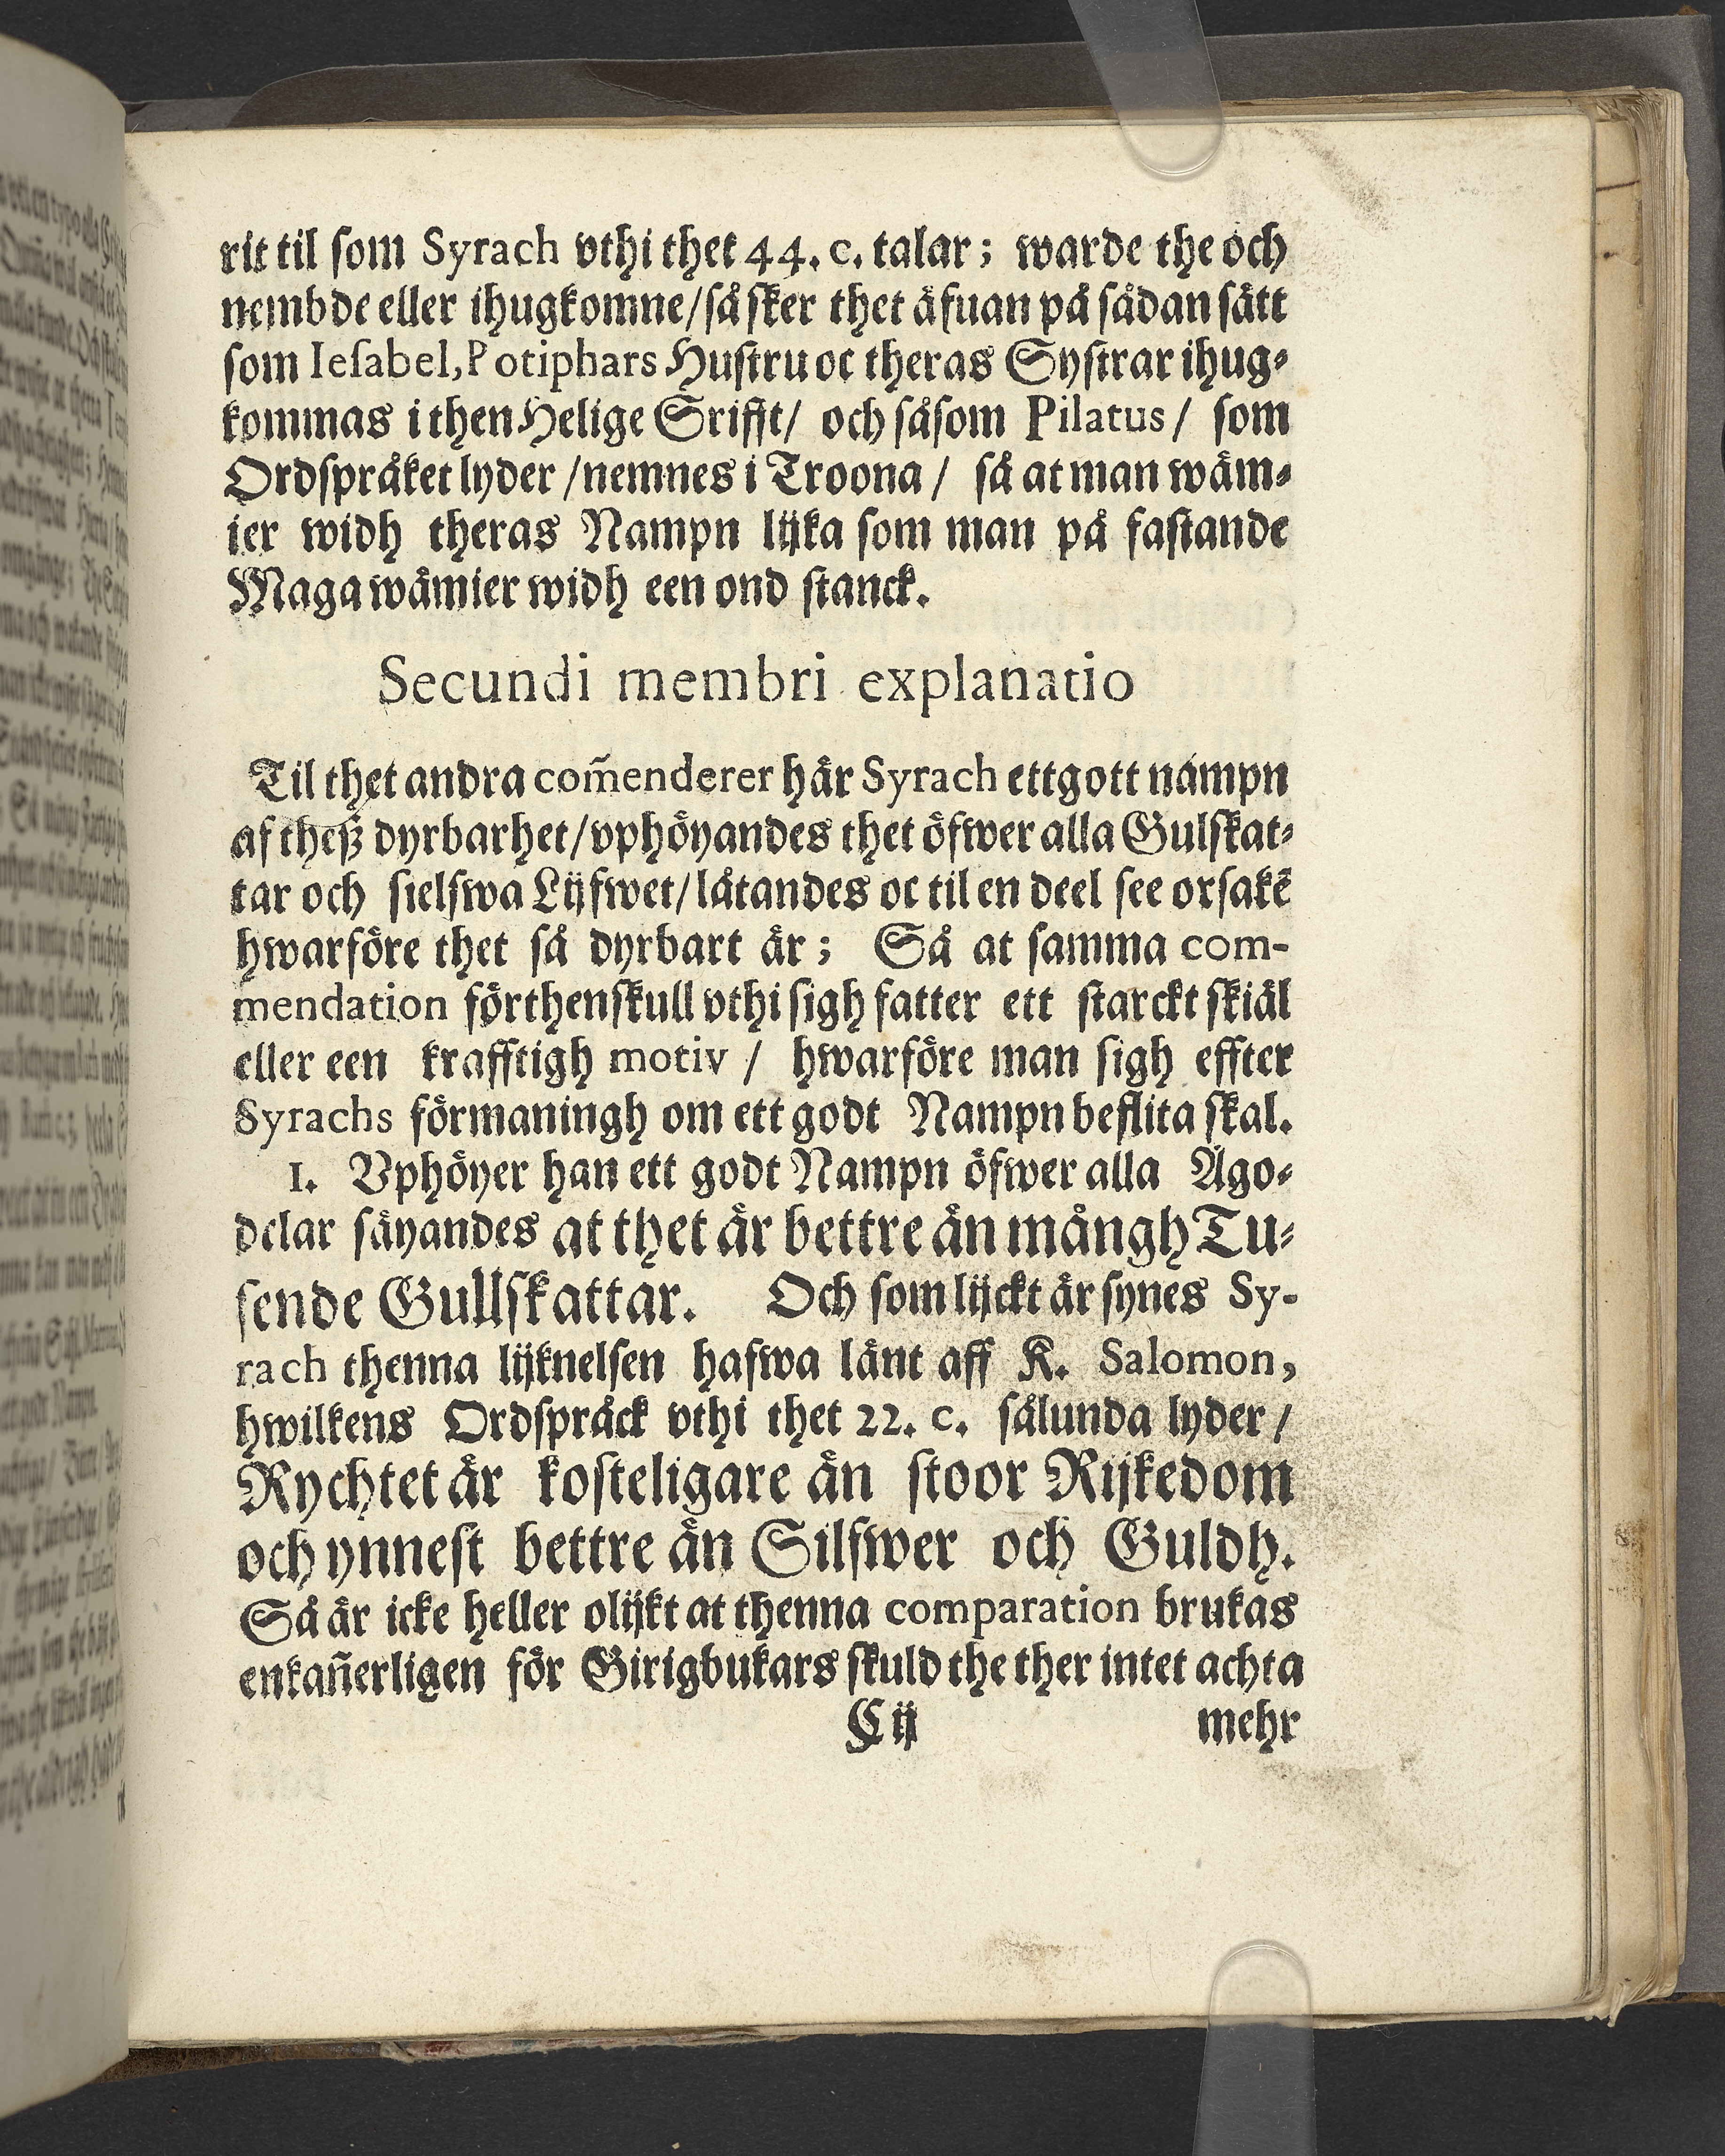 rit til som Syrach vthi thet 44. c. talar; warde the och
nembde eller ihugkomne/ så sker thet äfuan på sådan sätt
som Iesabel, Potiphars Hustru oc theras Systrar ihug⸗
kommas i then Helige Srifft/ och såsom Pilatus/ som
Ordspråket lyder / nemnes i Troona / så at man wäm⸗
ier widh theras Nampn lijka som man på fastande
Maga wämier widh een ond stanck.
Secundi membri explanatio
Til thet andra com̃enderer här Syrach ett gott nampn
af theß dyrbarhet/ vphöyandes thet öfwer alla Gulskat⸗
tar och sielfwa Lijfwet/ låtandes oc til en deel see orsakẽ
hwarföre thet så dyrbart är; Så at samma com-
mendation förthenskull vthi sigh fatter ett starckt skiäl
eller een krafftigh motiv / hwarföre man sigh effter
Syrachs förmaningh om ett godt Nampn beflita skal.
1. Vphöyer han ett godt Nampn öfwer alla Ägo⸗
delar säyandes at thet är bettre än mångh Tu⸗
sende Gullskattar. Och som lijckt är synes Sy-
rach thenna lijknelsen hafwa länt aff K. Salomon,
hwilkens Ordspråck vthi thet 22. c. sålunda lyder /
Rychtet är kosteligare än stoor Rijkedom
och ynnest bettre än Silfwer och Guldh.
Så är icke heller olijkt at thenna comparation brukas
enkañerligen för Girigbukars skuld the ther intet achta
C ij mehr